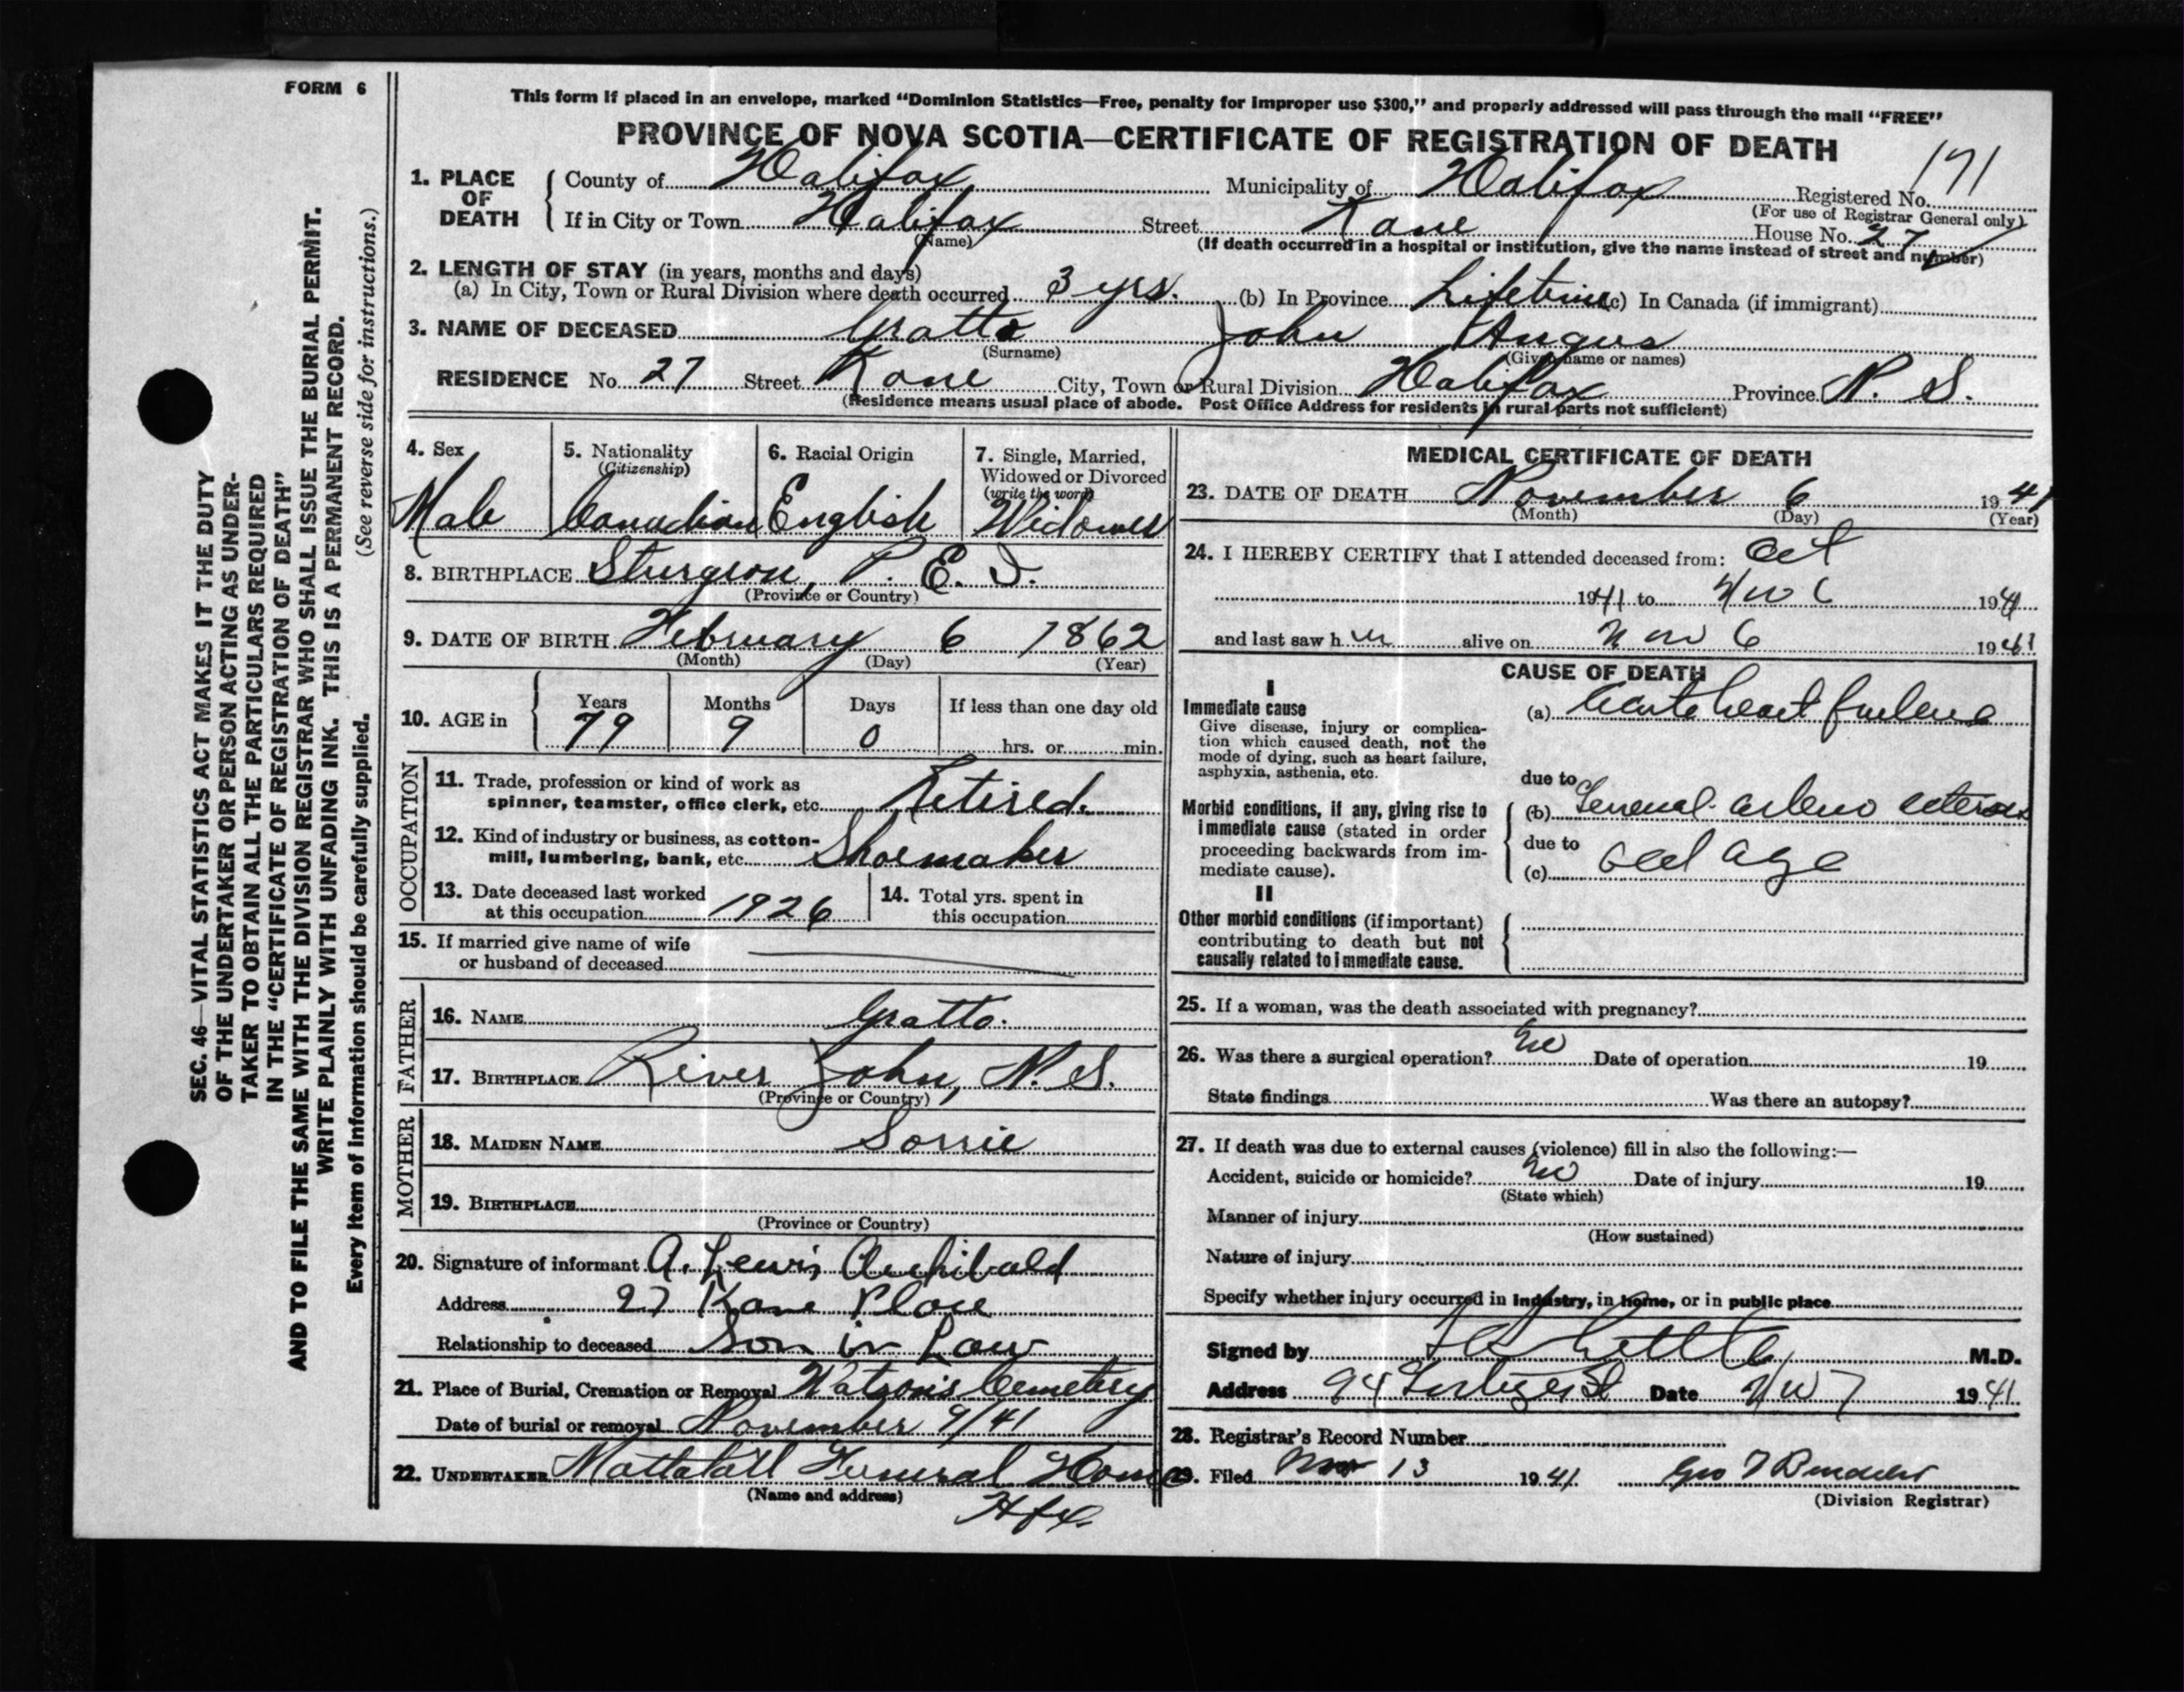 FORM 6
This form if placed in an envelope, marked “Dominion Statistics—Free, penalty for improper use $300,” and properly addressed will pass through the mail “FREE”
PROVINCE OF NOVA SCOTIA—CERTIFICATE OF REGISTRATION OF DEATH
171
1. PLACE OF DEATH
County of Halifax Municipality of Halifax Registered No.
(For use of Registrar General only)
If in City or Town Halifax Street Kane House No. 27
(Name) (If death occurred in a hospital or institution, give the name instead of street and number)
2. LENGTH OF STAY (in years, months and days)
(a) In City, Town or Rural Division where death occurred 3 yrs. (b) In Province Lifetime (c) In Canada (if immigrant)
3. NAME OF DECEASED Gratto John Angus
(Surname) (Given name or names)
RESIDENCE No. 27 Street Kane City, Town or Rural Division Halifax Province N. S.
(Residence means usual place of abode. Post Office Address for residents in rural parts not sufficient)
4. Sex
Male
5. Nationality
(Citizenship)
Canadian
6. Racial Origin
English
7. Single, Married,
Widowed or Divorced
(write the word)
Widower
8. BIRTHPLACE Sturgeon, P. E. I.
(Province or Country)
9. DATE OF BIRTH February 6 1862
(Month) (Day) (Year)
10. AGE in
Years Months Days If less than one day old
79 9 0 hrs. or min.
OCCUPATION
11. Trade, profession or kind of work as
spinner, teamster, office clerk, etc. Retired.
12. Kind of industry or business, as cotton-
mill, lumbering, bank, etc. Shoemaker
13. Date deceased last worked
at this occupation 1926
14. Total yrs. spent in
this occupation
15. If married give name of wife
or husband of deceased
FATHER
16. NAME Gratto.
17. BIRTHPLACE River John, N. S.
(Province or Country)
MOTHER
18. MAIDEN NAME Sorrie
19. BIRTHPLACE
(Province or Country)
20. Signature of informant A. Lewis Archibald
Address 27 Kane Place
Relationship to deceased Son in Law
21. Place of Burial, Cremation or Removal Watson's Cemetery
Date of burial or removal November 9/41
22. UNDERTAKER Mattatall Funeral Home
(Name and address) Hfx.
MEDICAL CERTIFICATE OF DEATH
23. DATE OF DEATH November 6 1941
(Month) (Day) (Year)
24. I HEREBY CERTIFY that I attended deceased from: Oct
1941 to Nov 6 1941
and last saw h alive on Nov 6 1941
CAUSE OF DEATH
I
Immediate cause
Give disease, injury or complica-
tion which caused death, not the
mode of dying, such as heart failure,
asphyxia, asthenia, etc.
(a) Acute heart failure
due to
Morbid conditions, if any, giving rise to
immediate cause (stated in order
proceeding backwards from im-
mediate cause).
(b) General
due to
(c) old age
II
Other morbid conditions (if important)
contributing to death but not
causally related to immediate cause.
25. If a woman, was the death associated with pregnancy?
26. Was there a surgical operation? no Date of operation 19
State findings Was there an autopsy?
27. If death was due to external causes (violence) fill in also the following:—
Accident, suicide or homicide? no Date of injury 19
(State which)
Manner of injury
(How sustained)
Nature of injury
Specify whether injury occurred in industry, in home, or in public place
Signed by M.D.
Address 94 Date Nov 7 1941
28. Registrar's Record Number
29. Filed Nov 13 1941
(Division Registrar)
SEC. 46—VITAL STATISTICS ACT MAKES IT THE DUTY
OF THE UNDERTAKER OR PERSON ACTING AS UNDER-
TAKER TO OBTAIN ALL THE PARTICULARS REQUIRED
IN THE “CERTIFICATE OF REGISTRATION OF DEATH”
AND TO FILE THE SAME WITH THE DIVISION REGISTRAR WHO SHALL ISSUE THE BURIAL PERMIT.
WRITE PLAINLY WITH UNFADING INK. THIS IS A PERMANENT RECORD.
Every item of information should be carefully supplied. (See reverse side for instructions.)